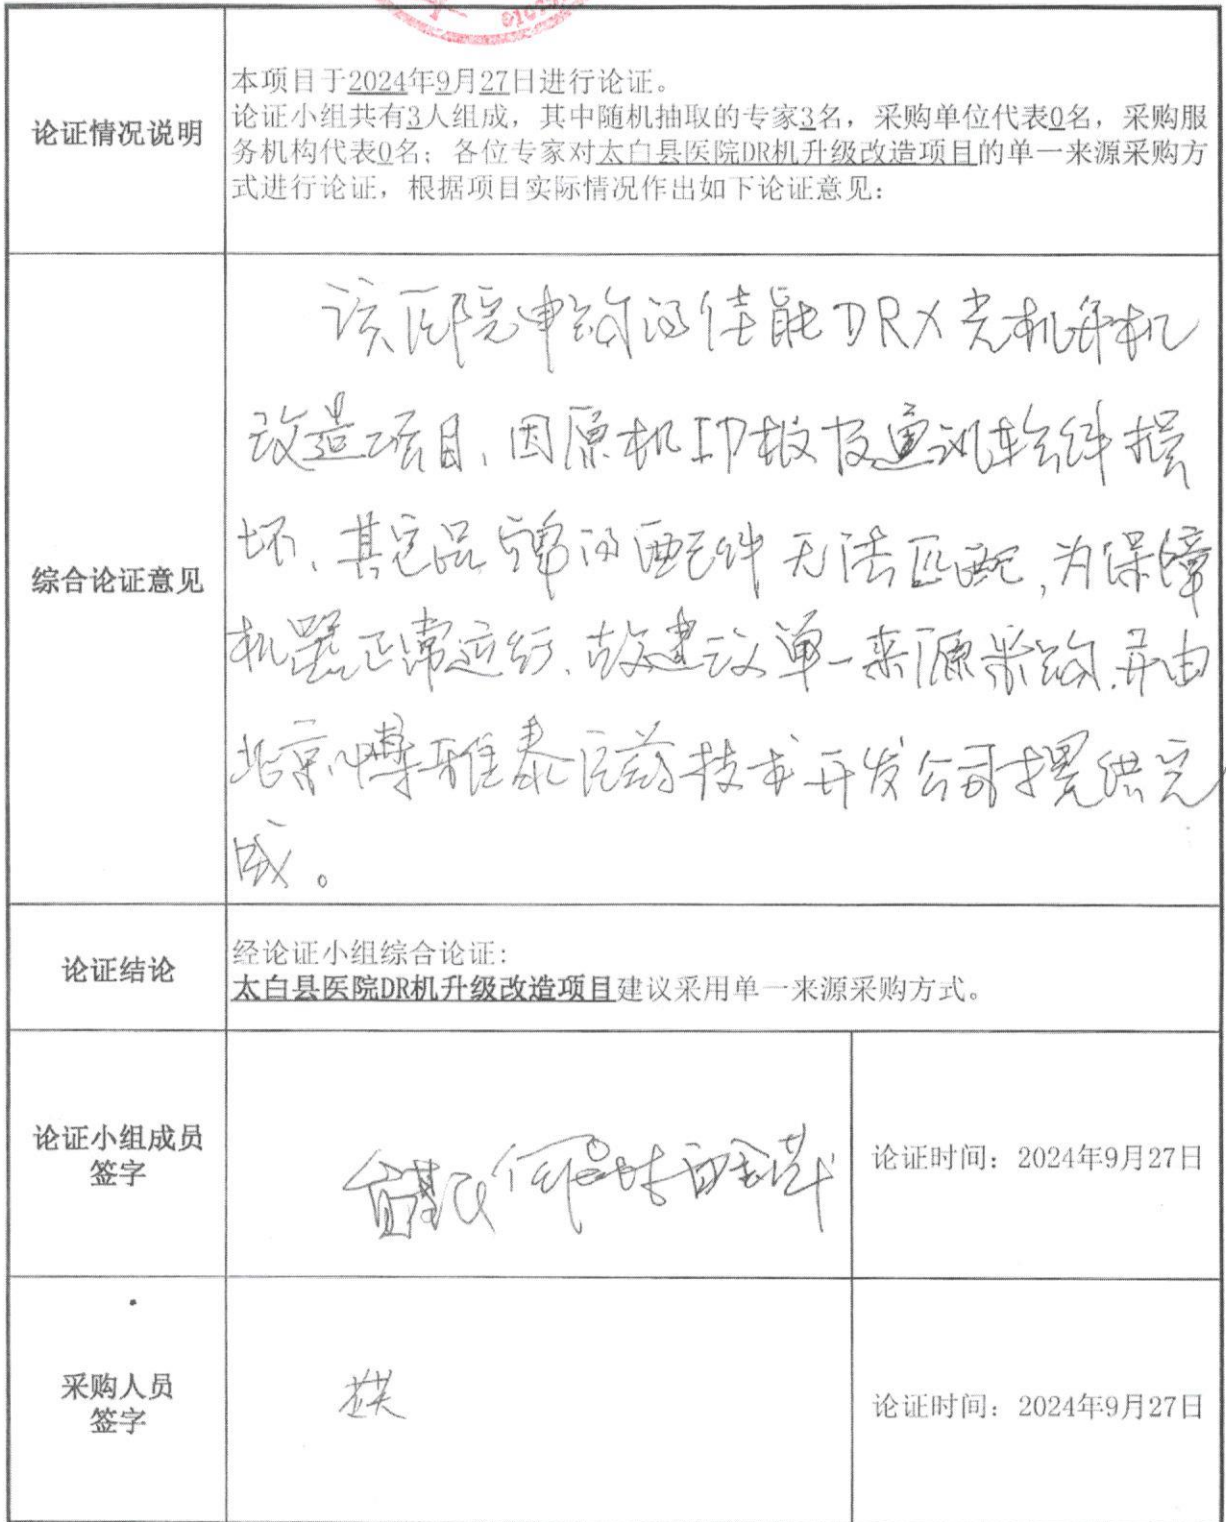 论证情况说明
本项目于2024年9月27日进行论证。
论证小组共有3人组成，其中随机抽取的专家3名，采购单位代表0名，采购服
务机构代表0名；各位专家对太白县医院DR机升级改造项目的单一来源采购方
式进行论证，根据项目实际情况作出如下论证意见：
综合论证意见
该医院申购的佳能DRX光机升机
改造项目，因原机IP板及通讯软件损
坏、其它品牌的配件无法匹配，为保障
机器正常运行、故建议单一来源采购，并由
北京博雅泰医药技术开发公司提供完
成。
论证结论
经论证小组综合论证：
太白县医院DR机升级改造项目建议采用单一来源采购方式。
论证小组成员
签字
论证时间：2024年9月27日
采购人员
签字
论证时间：2024年9月27日